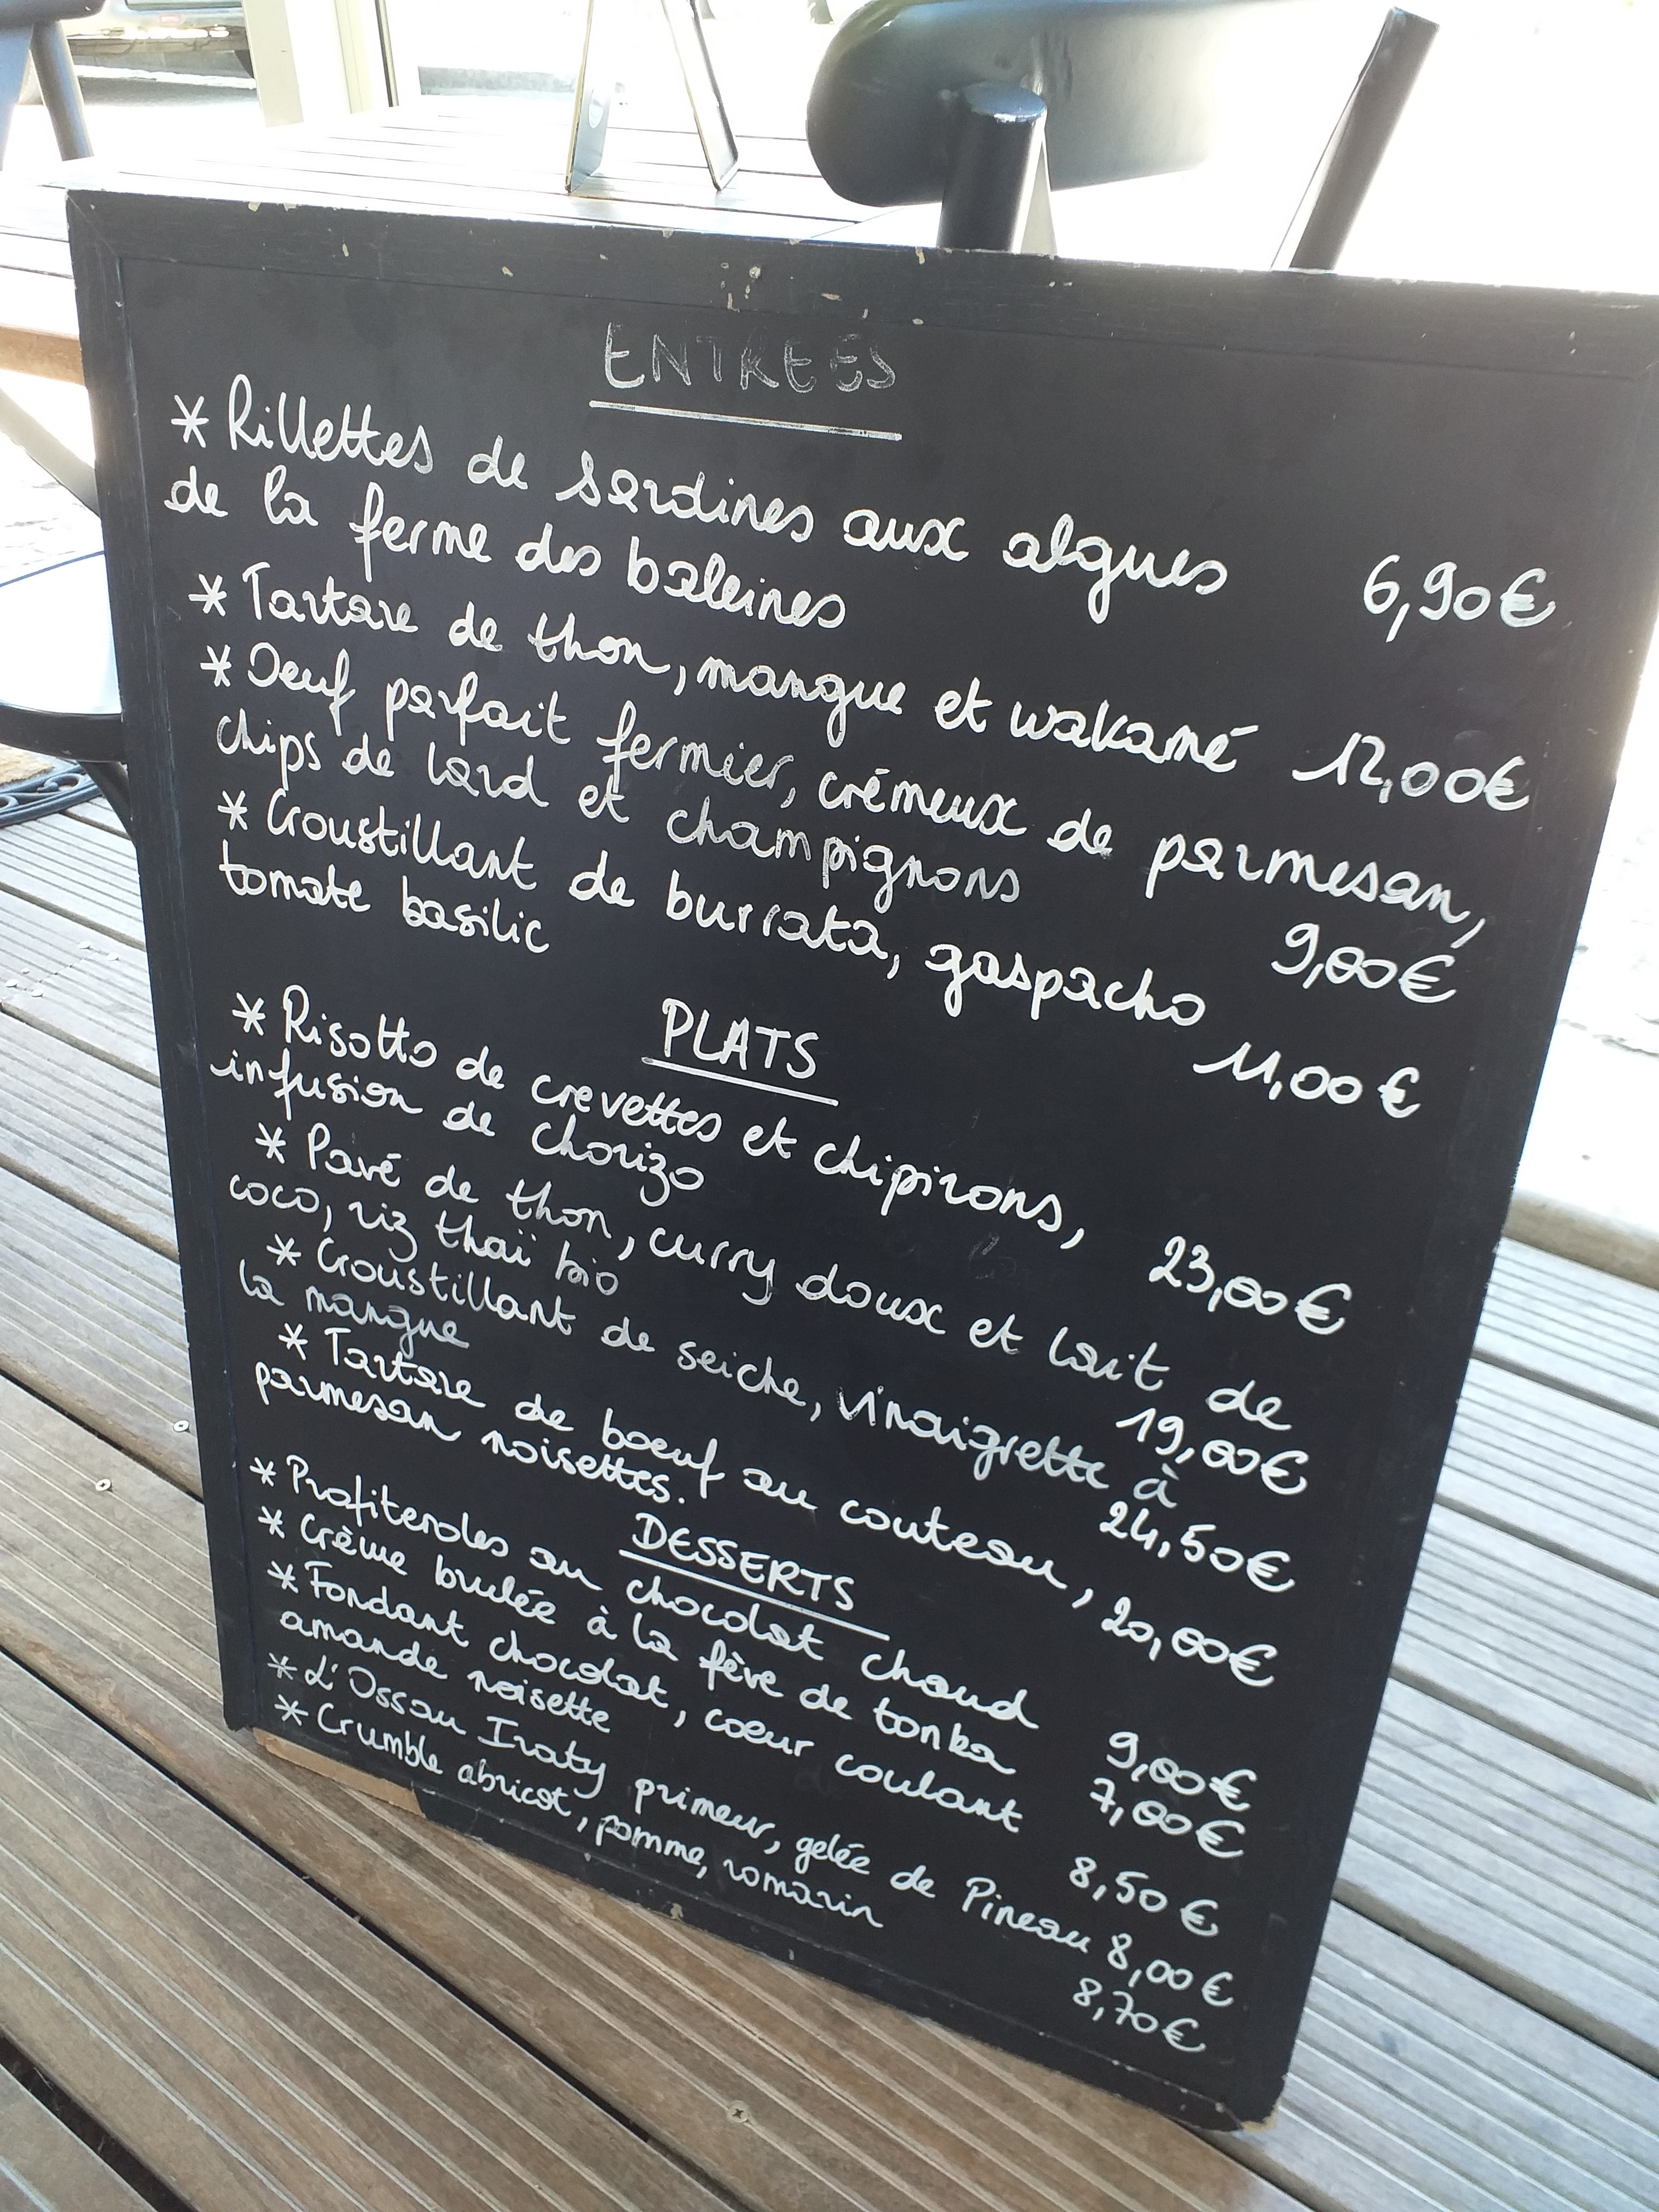 ENTREES
* Rillettes de sardines aux algues
de la ferme des baleines 6,90€
* Tartare de thon, mangue et wakamé 12,00€
* Oeuf parfait fermier, crémeux de parmesan,
chips de lard et champignons 9,00€
* Croustillant de burrata, gaspacho
tomate basilic 11,00€
PLATS
* Risotto de crevettes et chipirons,
infusion de chorizo 23,00€
* Pavé de thon, curry doux et lait de
coco, riz thaï bio 19,00€
* Croustillant de seiche, vinaigrette à
la mangue 24,50€
* Tartare de boeuf au couteau,
parmesan noisettes. 20,00€
DESSERTS
* Profiteroles au chocolat chaud 9,00€
* Crème brulée à la fève de tonka 7,00€
* Fondant chocolat, coeur coulant
amande noisette 8,50€
* L'Ossau Iraty primeur, gelée de Pineau 8,00€
* Crumble abricot, pomme, romarin 8,70€